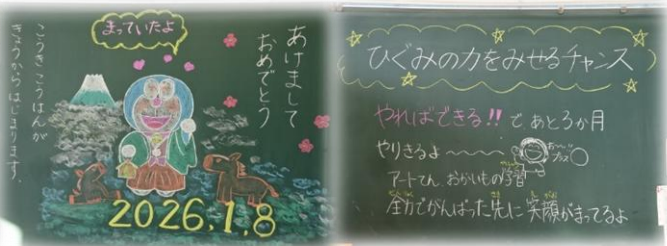 まっていたよ
あけまして
おめでとう
こうきこうはんが
きょうからはじまります。
2026.1.8
ひぐみの力をみせるチャンス
やればできる!! で あと3か月
やりきるよ〜〜〜
アートてん、おかいもの学習
全力でがんばった先に 笑顔がまってるよ